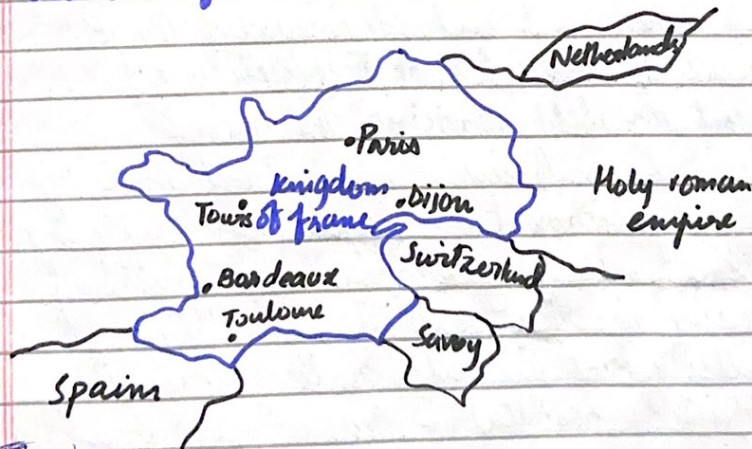 Netherlands
Paris
Kingdom
of france
Dijon
Tours
Holy roman
empire
Switzerland
Bordeaux
Toulouse
Savoy
Spain